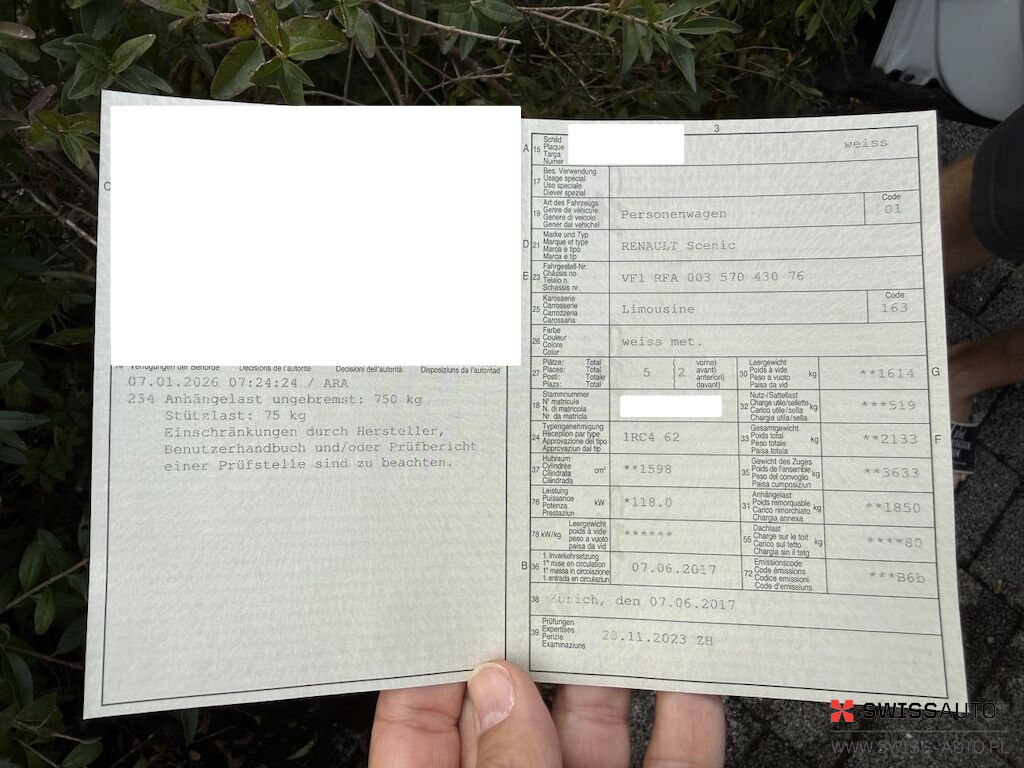 C
14 Verfügungen der Behörde Décisions de l'autorité Decisioni dell'autorità Disposiziuns da l'autoritad
07.01.2026 07:24:24 / ARA
234 Anhängelast ungebremst: 750 kg
Stützlast: 75 kg
Einschränkungen durch Hersteller,
Benutzerhandbuch und/oder Prüfbericht
einer Prüfstelle sind zu beachten.
3
A 15 Schild
Plaque
Targa
Numer
weiss
17 Bes. Verwendung
Usage spécial
Uso speciale
Diever spezial
19 Art des Fahrzeugs
Genre de véhicule
Genere di veicolo
Gener dal vehichel
Personenwagen
Code
01
D 21 Marke und Typ
Marque et type
Marca e tipo
Marca e tip
RENAULT Scenic
E 23 Fahrgestell-Nr.
Châssis no
Telaio n.
Schassis nr.
VF1 RFA 003 570 430 76
25 Karosserie
Carrosserie
Carrozzeria
Carossaria
Limousine
Code
163
26 Farbe
Couleur
Colore
Colur
weiss met.
27 Plätze: Total
Places: Total
Posti: Totale
Plazs: Total
5 ( 2 vorne)
avant)
anteriori)
davant)
30 Leergewicht
Poids à vide
Peso a vuoto
Paisa da vid
kg
**1614
G
18 Stammnummer
N° matricule
N. di matricola
Nr. da matricla
32 Nutz-/Sattellast
Charge utile/sellette
Carico utile/sella
Chargia utila/sella
kg
***519
24 Typengenehmigung
Réception par type
Approvazione del tipo
Approvaziun dal tip
1RC4 62
33 Gesamtgewicht
Poids total
Peso totale
Paisa totala
kg
**2133
F
37 Hubraum
Cylindrée
Cilindrata
Cilindrada
cm³
**1598
35 Gewicht des Zuges
Poids de l'ensemble
Peso del convoglio
Paisa cumposiziun
kg
**3633
76 Leistung
Puissance
Potenza
Prestaziun
kW
*118.0
31 Anhängelast
Poids remorquable
Carico rimorchiato
Chargia annexa
kg
**1850
78 kW/kg Leergewicht
poids à vide
peso a vuoto
paisa da vid
******
55 Dachlast
Charge sur le toit
Carico sul tetto
Chargia sin il tetg
kg
****80
B 36 1. Inverkehrsetzung
1re mise en circulation
1a messa in circolazione
1. entrada en circulaziun
07.06.2017
72 Emissionscode
Code émissions
Codice emissioni
Code d'emissiuns
***B6b
38 Zürich, den 07.06.2017
39 Prüfungen
Expertises
Perizie
Examinaziuns
20.11.2023 ZH
SWISSAUTO
WWW.SWISS-AUTO.PL